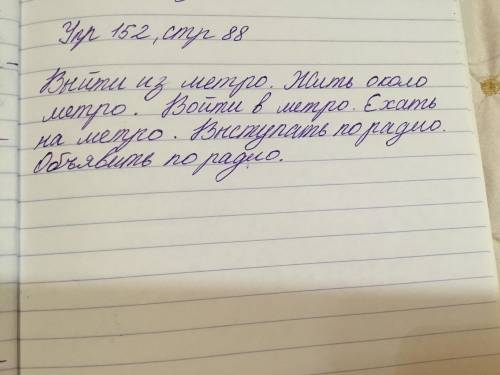 Упр 152, стр 88
Выйти из метро. Жить около
метро. Войти в метро. Ехать
на метро. Выступать по радио.
Объявить по радио.